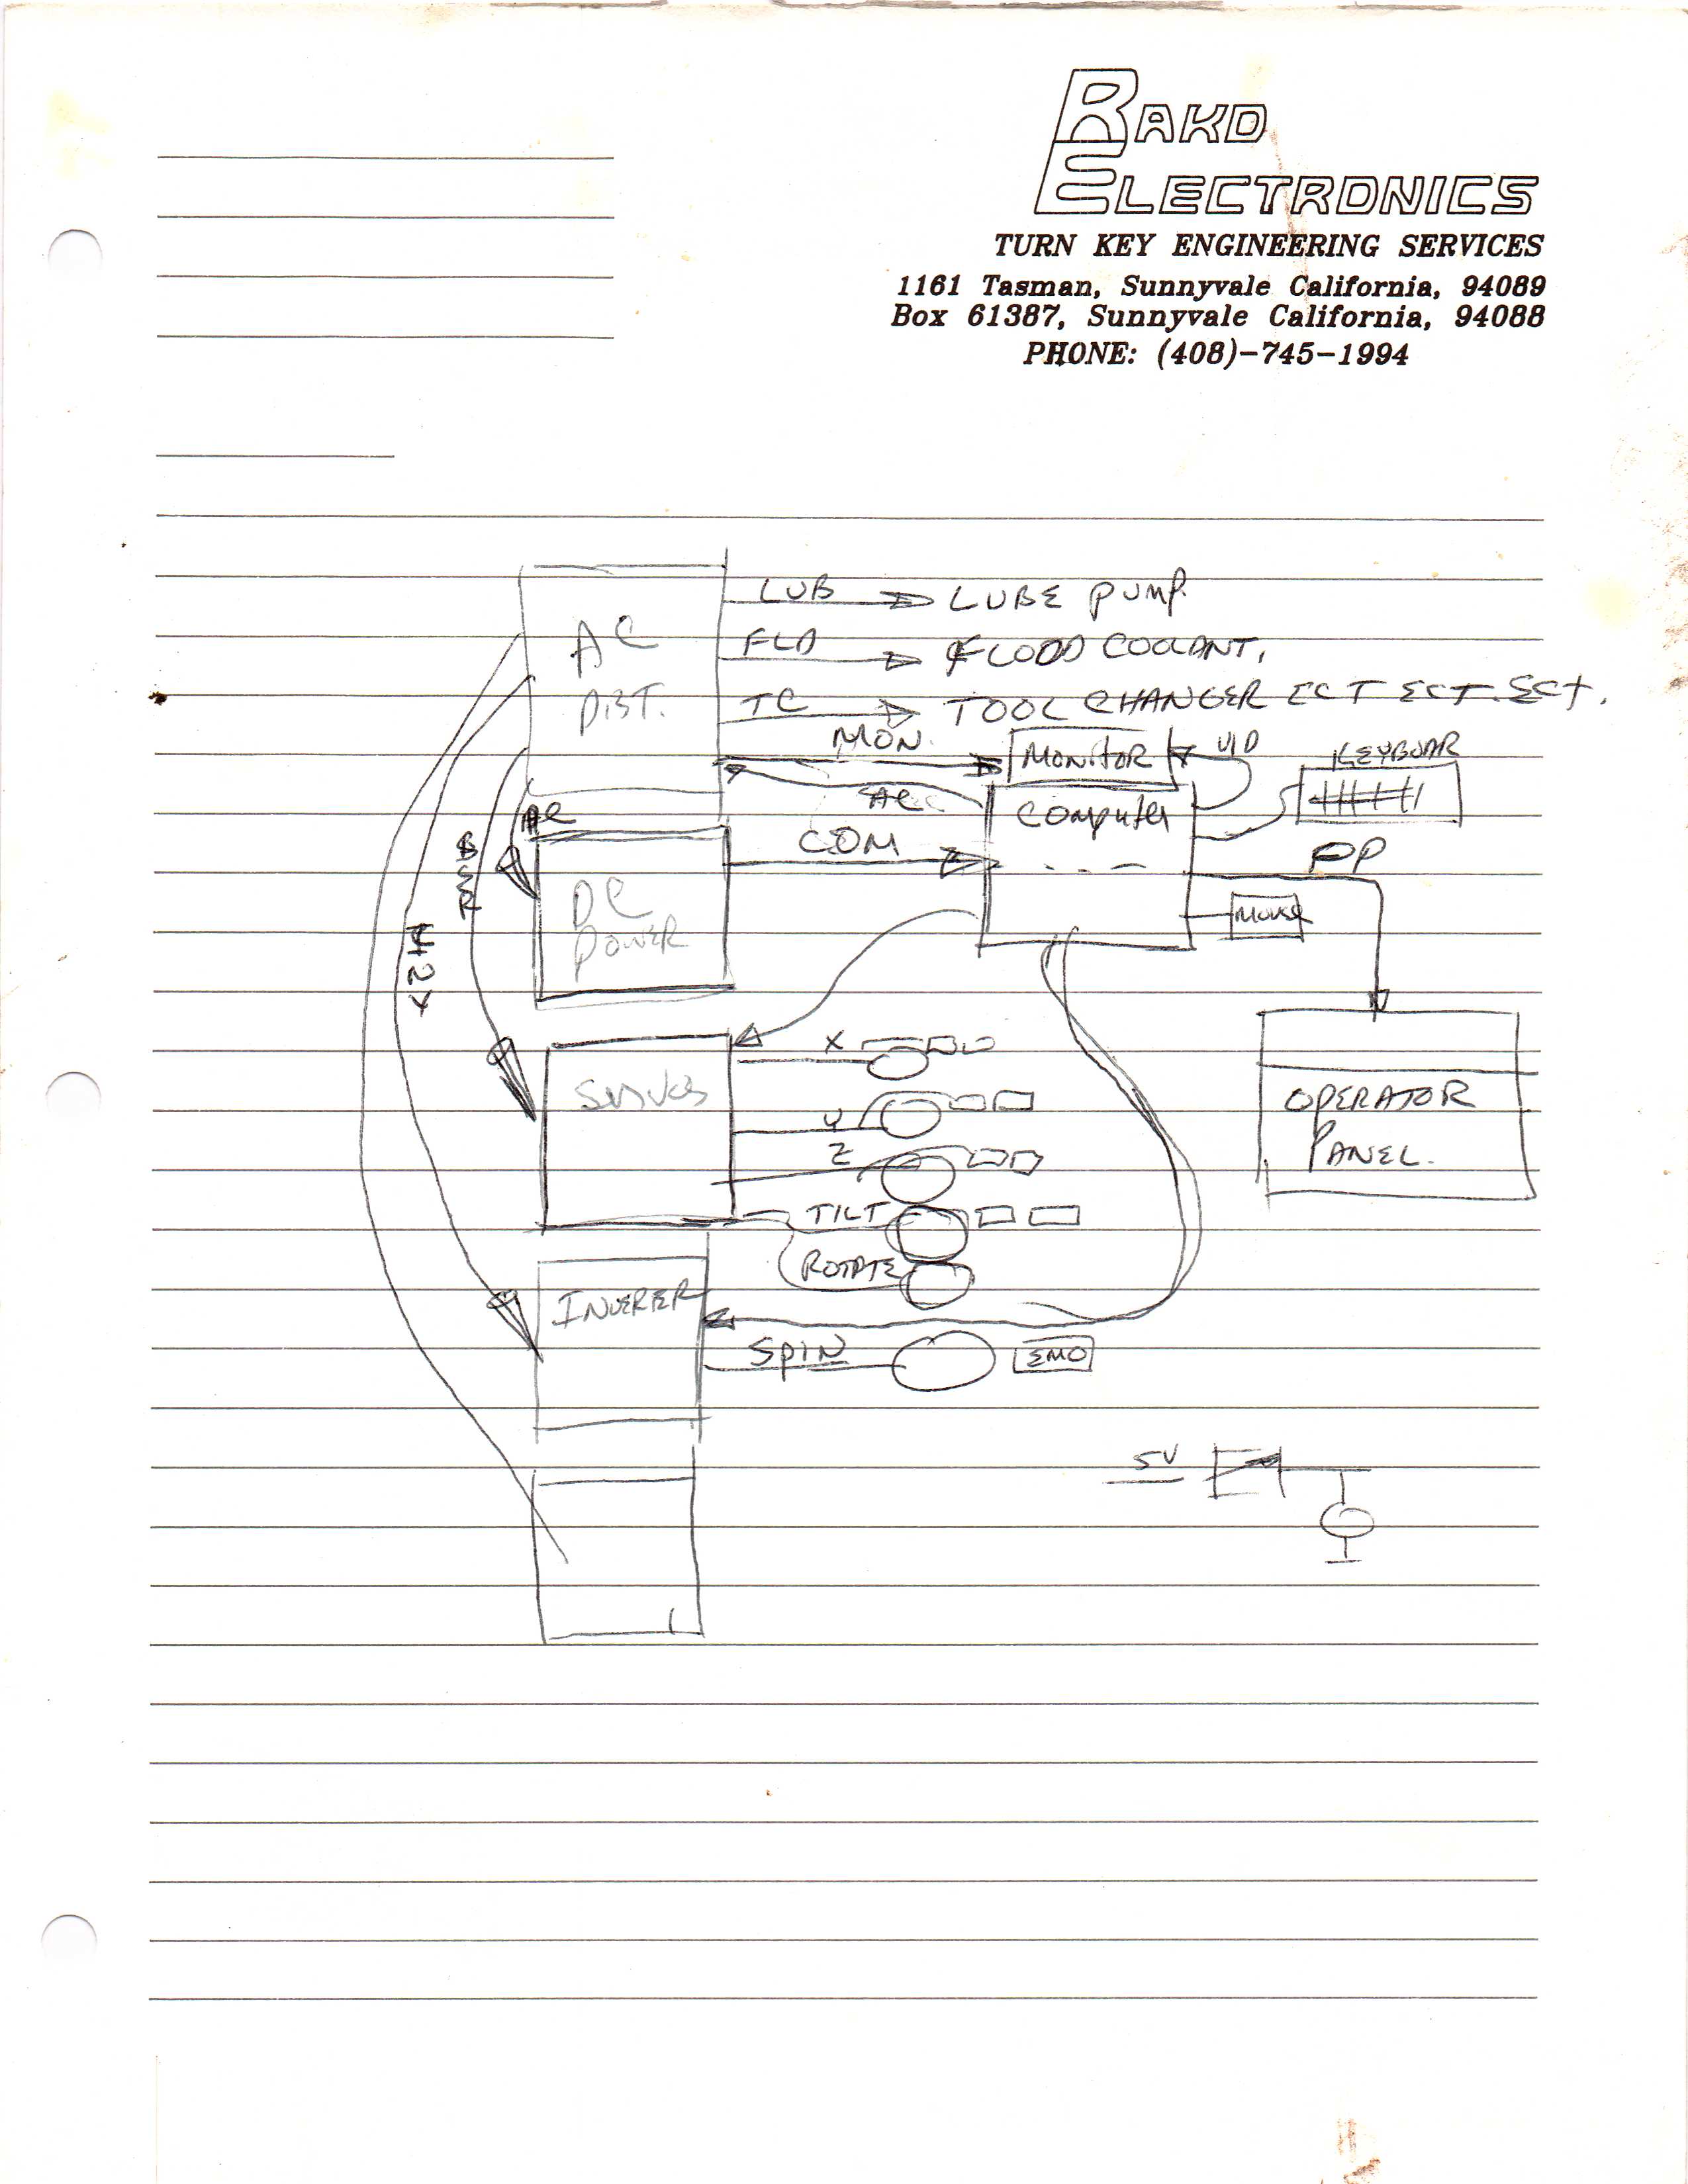 RAKO
ELECTRONICS
TURN KEY ENGINEERING SERVICES
1161 Tasman, Sunnyvale California, 94089
Box 61387, Sunnyvale California, 94088
PHONE: (408)-745-1994
LUB LUBE PUMP.
FLD FLOOD COOLANT,
AC
DIST.
TC TOOL CHANGER ECT ECT. ECT.
MON.
MONITOR
VID
KEYBOAR
AC
AC
Computer
COM
PP
DC
POWER
MOUSE
X
SERVOS
Y
OPERATOR
PANEL.
Z
TILT
ROTATE
INVERER
SPIN
EMO
5V